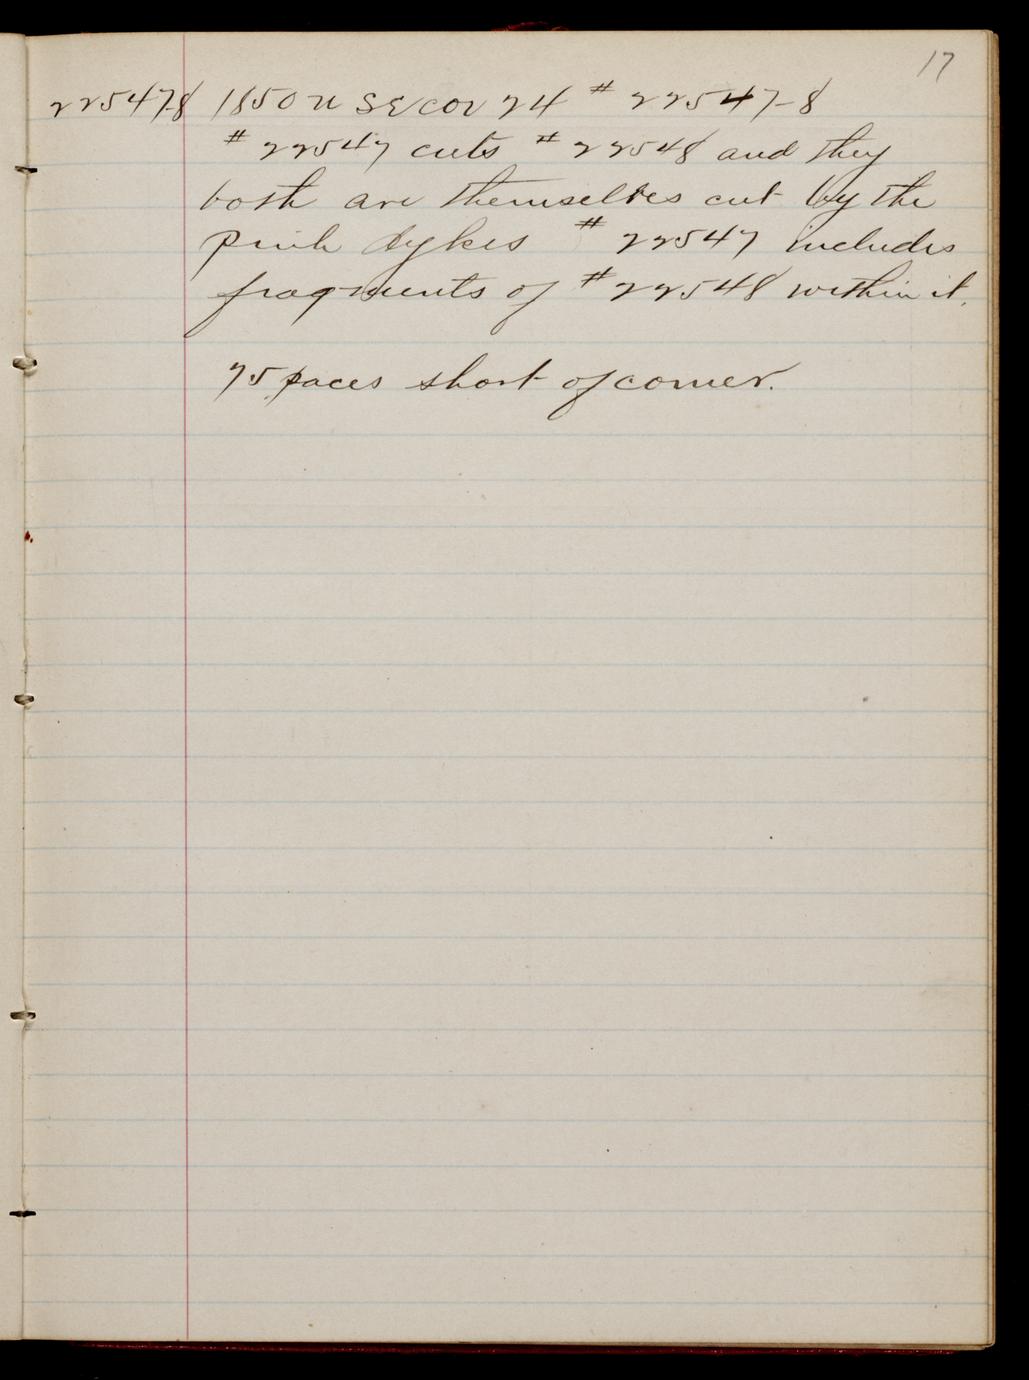 17
22547-8 1850 N SE cor 24 # 22547-8
# 22547 cuts # 22548 and they
both are themselves cut by the
pink dykes # 22547 includes
fragments of # 22548 within it.
75 paces short of corner.